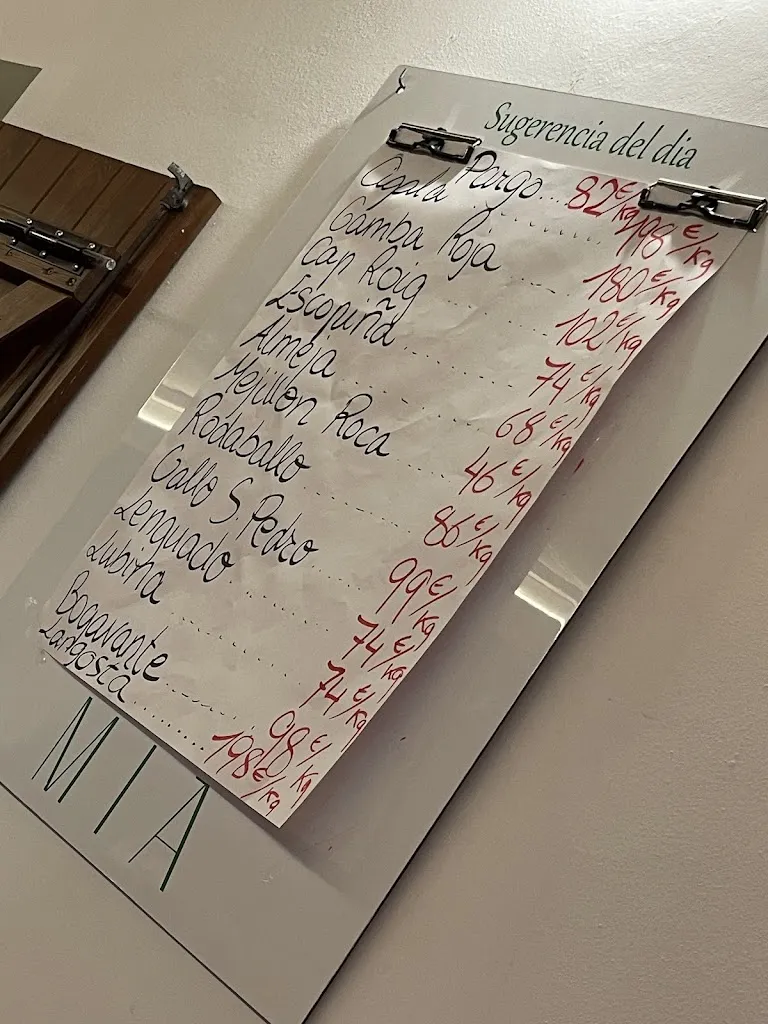 Sugerencia del dia
Pargo... 82€/kg
Cigala ........ 198€/kg
Gamba Roja ...... 180€/kg
Cap Roig ........ 102€/kg
Escopiña ........ 74€/kg
Almeja ........ 68€/kg
Mejillon Roca ...... 46€/kg
Rodaballo ........ 86€/kg
Gallo S. Pedro ...... 99€/kg
Lenguado ........ 74€/kg
Lubina ........ 74€/kg
Bogavante ........ 98€/kg
Langosta ........ 198€/kg
MIA